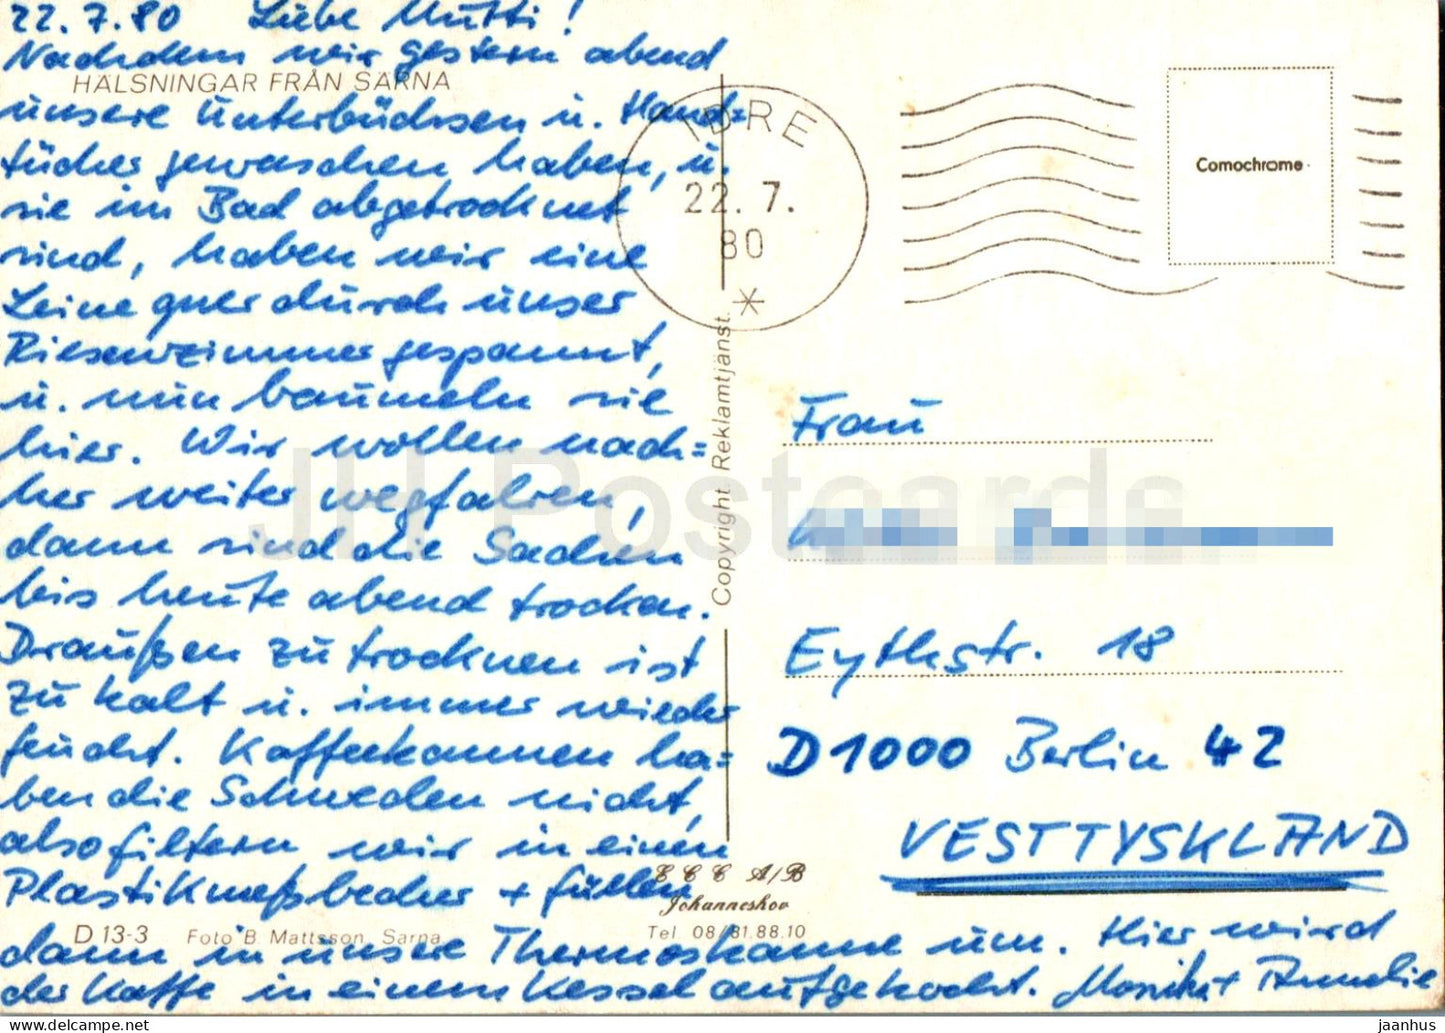 22.7.80 Liebe Mutti!
Nachdem wir gestern abend
HÄLSNINGAR FRÅN SÄRNA
unsere Unterbüchsen u. Hand=
tücher gewaschen haben, u.
sie im Bad abgetrocknet
sind, haben wir eine
Leine quer durch unser
Riesenzimmer gespannt,
u. nun baumeln sie
hier. Wir wollen nach=
her weiter wegfahren,
dann sind die Sachen
bis heute abend trocken.
Draußen zu trocknen ist
zu kalt u. immer wieder
feucht. Kaffeekannen ha=
ben die Schweden nicht,
also filtern wir in einen
Plastikmeßbecher + füllen
dann in unsere Thermoskanne um. Hier wird
der Kaffe in einem Kessel aufgekocht. Monika + Annelie
D 13-3 Foto B. Mattsson, Särna
Copyright. Reklamtjänst.
E C C A/B
Johanneshov
Tel 08/81.88.10
IDRE
22. 7.
80
Comochrome
Frau
Eythstr. 18
D 1000 Berlin 42
VESTTYSKLAND
JH Postcards
jaanhus @ www.delcampe.net